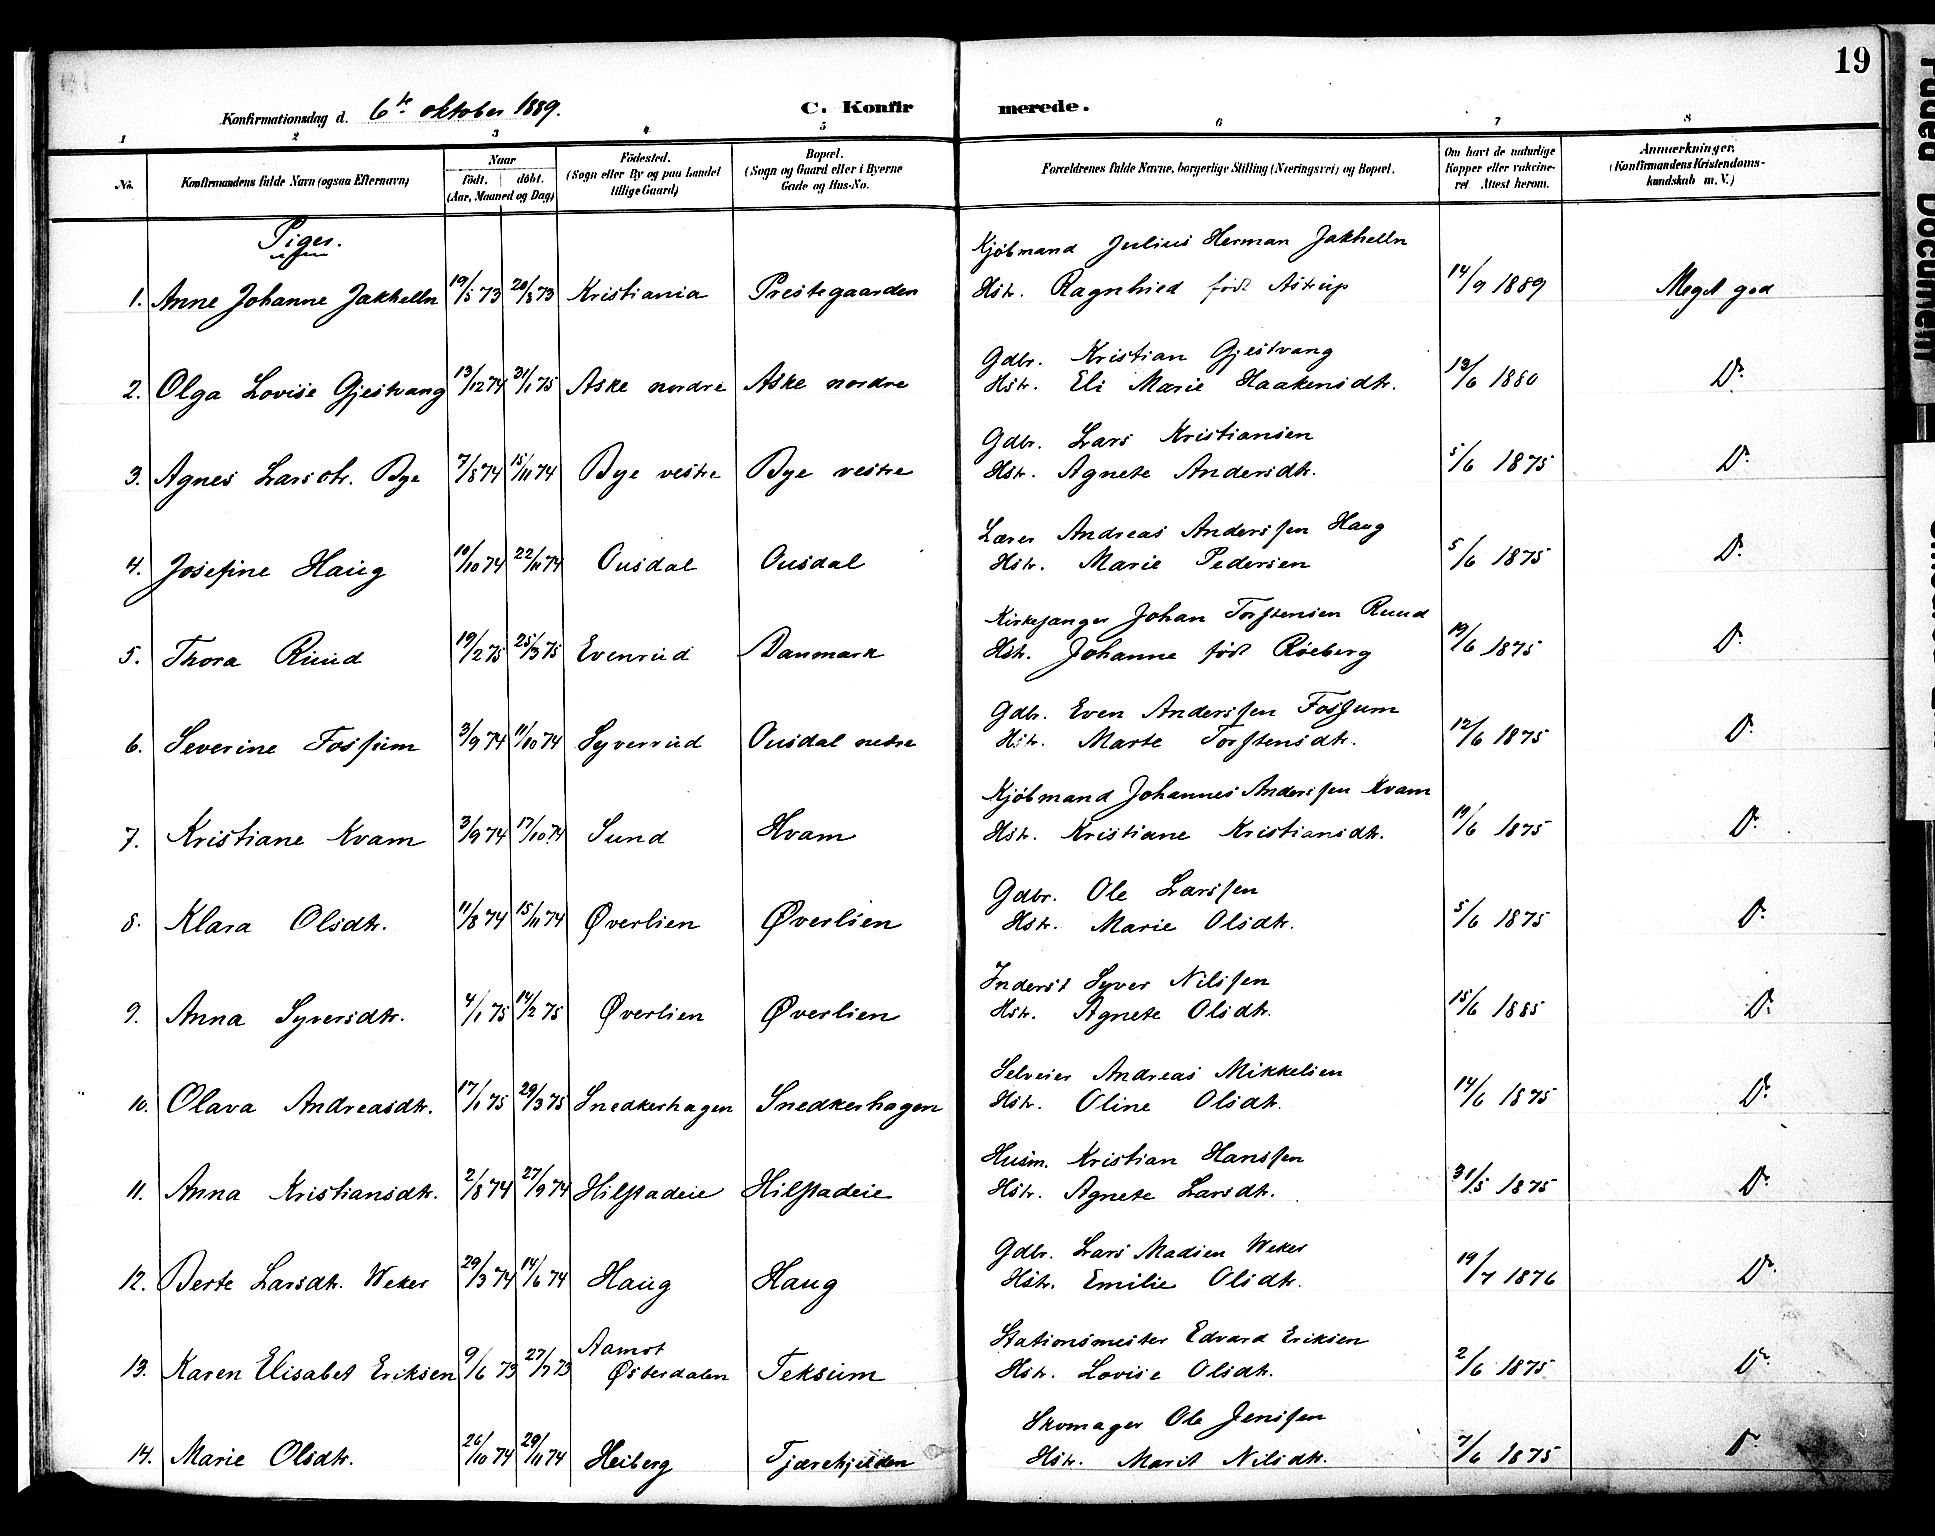 19
Konfirmationsdag d. 6te oktober 1889. C. Konfirmerede.
1 2 3 4 5 6 7 8
No. Konfirmandens fulde Navn (ogsaa Efternavn) Naar födt. döbt. (Aar, Maaned og Dag) Födested. (Sogn eller By og paa Landet tillige Gaard) Bopæl. (Sogn og Gaard eller i Byerne Gade og Hus-No. Forældrenes fulde Navne, borgerlige Stilling (Næringsvei) og Bopæl. Om havt de naturlige Kopper eller vaccineret. Attest herom. Anmærkninger. (Konfirmandens Kristendomskundskab m. V.)
Piger.
Kjøbmand Julius Herman Jakhelln
1. Anne Johanne Jakhelln 19/5 73 20/8 73 Kristiania Prestegaarden Hstr. Ragnhild født Astrup 14/9 1889 Meget god
Gdbr. Kristian Gjestvang
2. Olga Lovise Gjestvang 13/12 74 31/1 75 Aske nordre Aske nordre Hstr. Eli Marie Haakensdtr. 13/6 1880 Do.
Gdbr. Lars Kristiansen
3. Agnes Larsdtr. Bye 7/8 74 15/11 74 Bye vestre Bye vestre Hstr. Agnete Andersdtr. 5/6 1875 Do.
Lærer Andreas Anderssen Haug
4. Josefine Haug 10/10 74 22/11 74 Ousdal Ousdal Hstr. Marie Pedersen 5/6 1875 Do.
Kirkesanger Johan Torstensen Ruud
5. Thora Ruud 19/2 75 25/3 75 Evenrud Danmark Hstr. Johanne født Røeberg 19/6 1875 Do.
Gdbr. Even Anderssen Fossum
6. Severine Fossum 3/9 74 11/10 74 Syverrud Ousdal nedre Hstr. Marte Torstensdtr. 12/6 1875 Do.
Kjøbmand Johannes Anderssen Kvam
7. Kristiane Kvam 3/9 74 17/10 74 Sund Hvam Hstr. Kristiane Kristiansdtr. 19/6 1875 Do.
Gdbr. Ole Larssen
8. Klara Olsdtr. 11/8 74 15/11 74 Øverlien Øverlien Hstr. Marie Olsdtr. 5/6 1875 Do.
Inderst Syver Nilssen
9. Anna Syversdtr. 4/1 75 14/2 75 Øverlien Øverlien Hstr. Agnete Olsdtr. 15/6 1885 Do.
Selveier Andreas Mikkelsen
10. Olava Andreasdtr. 17/1 75 29/3 75 Snedkerhagen Snedkerhagen Hstr. Oline Olsdtr. 14/6 1875 Do.
Husm. Kristian Hanssen
11. Anna Kristiansdtr. 2/8 74 27/9 74 Hilstadeie Hilstadeie Hstr. Agnete Larsdtr. 31/5 1875 Do.
Gdbr. Lars Madsen Weker
12. Berte Larsdtr. Weker 29/3 74 14/6 74 Haug Haug Hstr. Emilie Olsdtr. 19/7 1876 Do.
Aamot Stationsmester Edvard Eriksen
13. Karen Elisabet Eriksen 9/6 73 27/7 73 Østerdalen Teksum Hstr. Lovise Olsdtr. 2/6 1875 Do.
Skomager Ole Jenssen
14. Marie Olsdtr. 26/10 74 29/11 74 Heiberg Tjærekjelden Hstr. Marit Nilsdtr. 7/6 1875 Do.